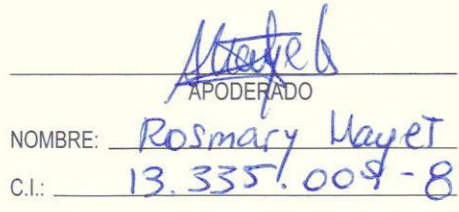 APODERADO
NOMBRE: Rosmary Mayet
C.I.: 13.335.009-8